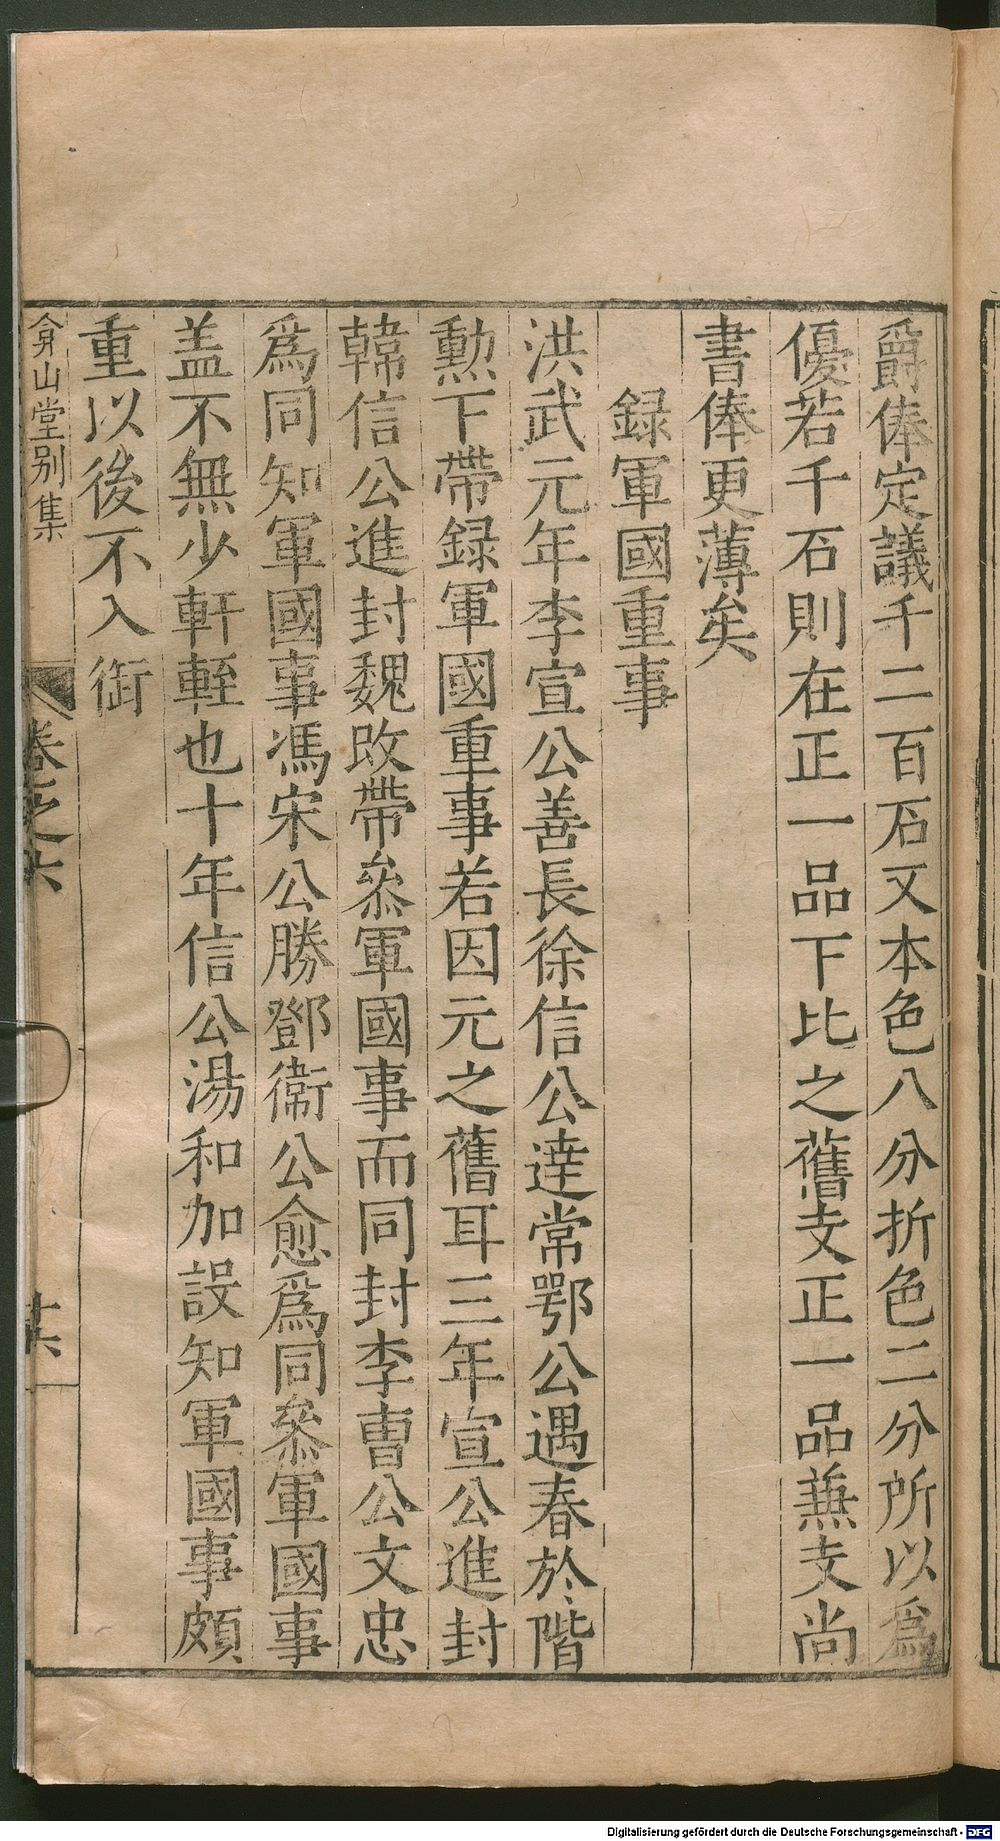 爵俸定議千二百石又本色八分折色二分所以為
優若千石則在正一品下比之舊支正一品兼支尚
書俸更薄矣
録軍國重事
洪武元年李宣公善長徐信公達常鄂公遇春於階
勳下帶録軍國重事若因元之舊耳三年宣公進封
韓信公進封魏改帶叅軍國事而同封李曹公文忠
爲同知軍國事馮宋公勝鄧衛公愈爲同叅軍國事
盖不無少軒輊也十年信公湯和加設知軍國事頗
重以後不入銜
弇山堂别集
卷之六
廿六
Digitalisierung gefördert durch die Deutsche Forschungsgemeinschaft - DFG